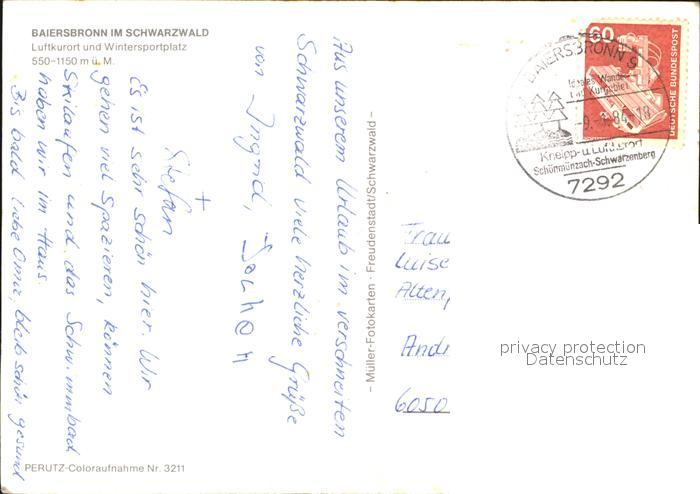 BAIERSBRONN IM SCHWARZWALD
Luftkurort und Wintersportplatz
550–1150 m ü. M.
Aus unserem Urlaub im verschneiten
Schwarzwald viele herzliche Grüße
von Ingrid, Jochen
+
Stefan
Es ist sehr schön hier. Wir
gehen viel spazieren, können
Skilaufen und das Schwimmbad
haben wir im Haus.
Bis bald liebe Oma, bleib schön gesund
PERUTZ-Coloraufnahme Nr. 3211
– Müller-Fotokarten · Freudenstadt/Schwarzwald –
60
DEUTSCHE BUNDESPOST
BAIERSBRONN 9
Ideales Wander-
und Kurgebiet
84-18
Kneipp-u.Luftkurort
Schönmünzach-Schwarzenberg
7292
Frau
Luise
Alten
Andr
6050
privacy protection
Datenschutz